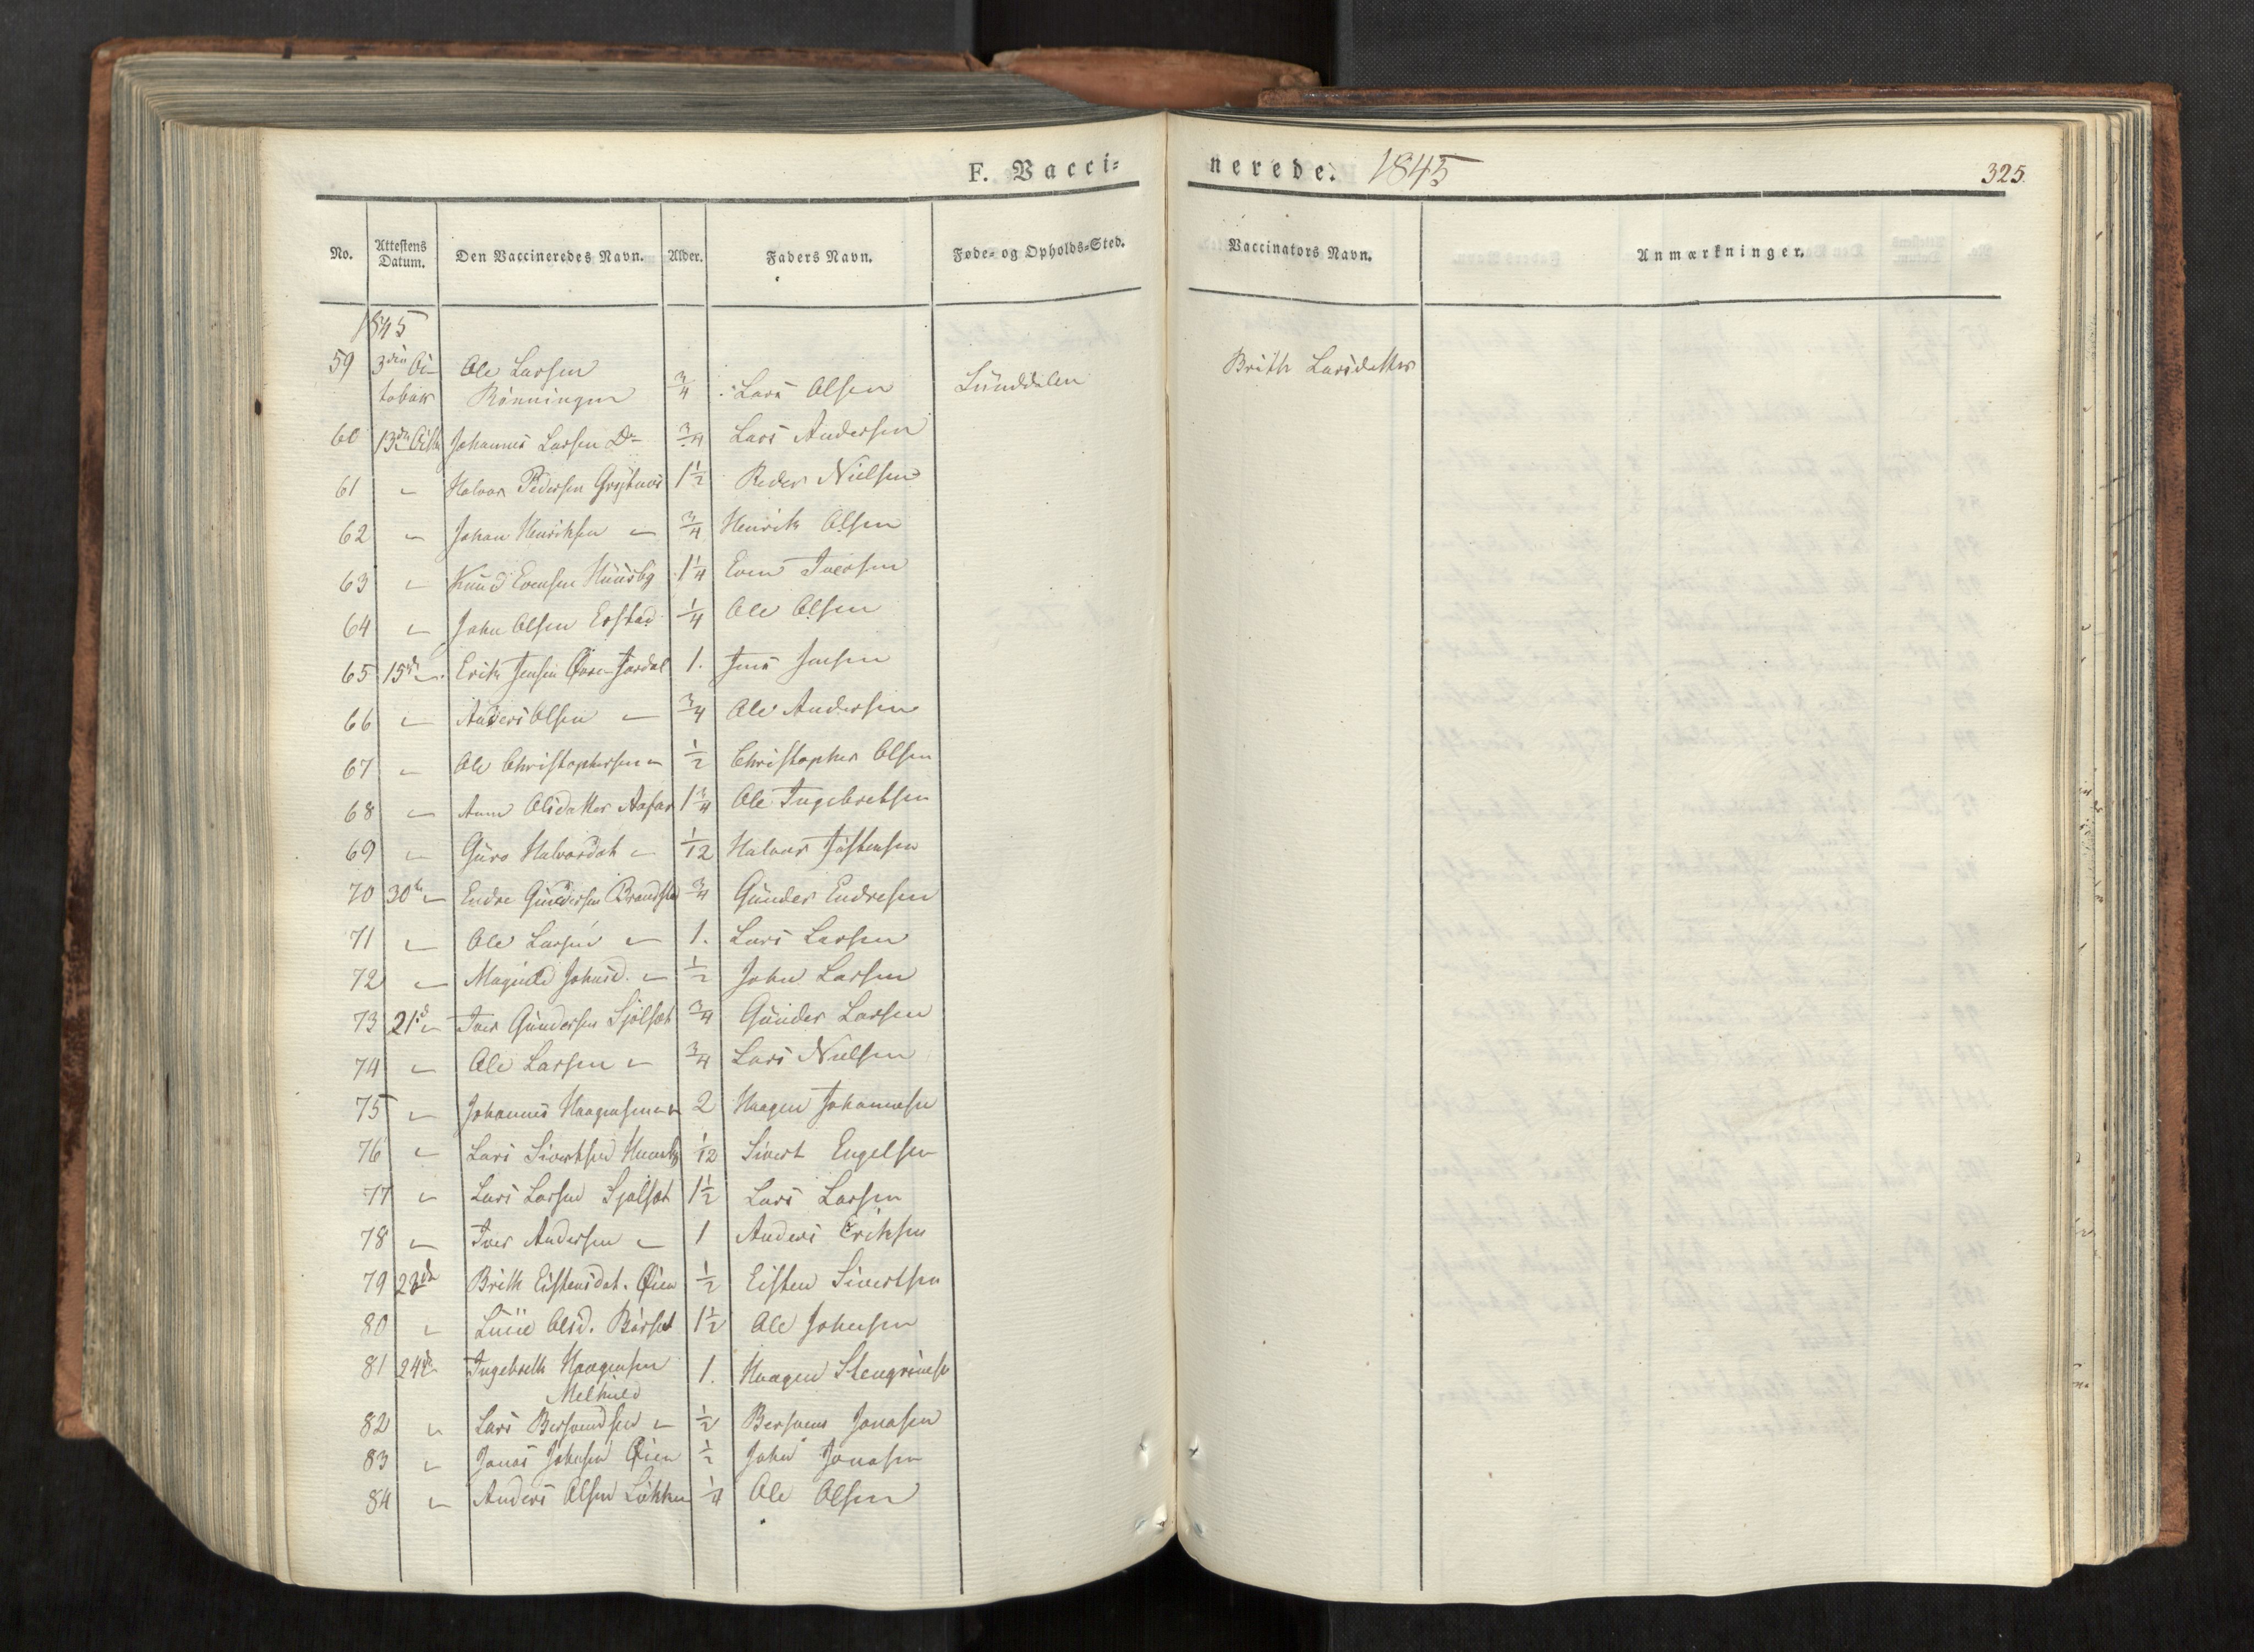 F. Vacci=
nerede. 1845
325.
No. Attestens Datum. Den Vaccineredes Navn. Alder. Faders Navn. Føde- og Opholds-Sted. Vaccinators Navn. Anmærkninger.
1845
59 3den Oc Ole Larsen Brith Larsdatter
tober Rönningen 3/4 Lars Olsen Sunddalen
60 13de Octb Johannes Larsen Do 3/4 Lars Andersen
61 " Halvor Pedersen 1 1/2 Peder Nielsen
62 " Johan Henriksen " 3/4 Henrik Olsen
63 " Knud Evensen Huusby 1 1/4 Even Iversen
64 " John Olsen 1/4 Ole Olsen
65 15de " Erik Jensen Jordal 1. Jens Jensen
66 " Anders Olsen " 3/4 Ole Andersen
67 " Ole Christophersen " 1/2 Christopher Olsen
68 " Anne Olsdatter 1 3/4 Ole Ingebretsen
69 " Guro Halvorsdat " 1/12 Halvor
70 30te " Endre Gundersen 3/4 Gunder Endresen
71 " Ole Larsen " 1. Lars Larsen
72 " Johnsd. " 1/2 John Larsen
73 21de " Iver Gundersen Sjölset 3/4 Gunder Larsen
74 " Ole Larsen " 3/4 Lars Nielsen
75 " Johannes Haagensen " 2 Haagen Johannesen
76 " Lars Sivertsen Huusby 1/12 Sivert Engelsen
77 " Lars Larsen Sjølset 1 1/2 Lars Larsen
78 " Iver Andersen " 1 Anders Eriksen
79 22de Brith Eistensdat. Øien 1/2 Eisten Sivertsen
80 " Olsd. Börset 1 1/2 Ole Johnsen
81 24de Ingebreth Haagensen 1. Haagen
Melhuld
82 " Lars Bersvendsen " 1/2 Jonasen
83 " Jonas Johnsen Øien 1/2 John Jonasen
84 " Anders Olsen Løkken 1/4 Ole Olsen